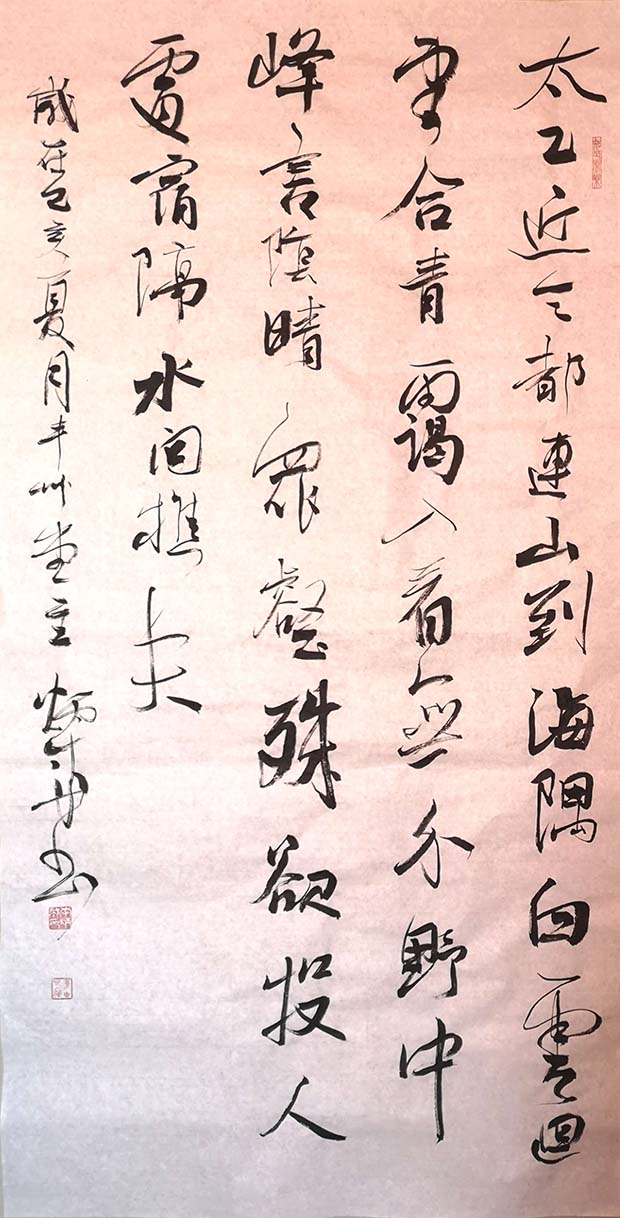 太乙近天都連山到海隅白雲迴
望合青靄入看無分野中
峰變陰晴眾壑殊欲投人
處宿隔水問樵夫
歲在己亥夏月丰州堂主書